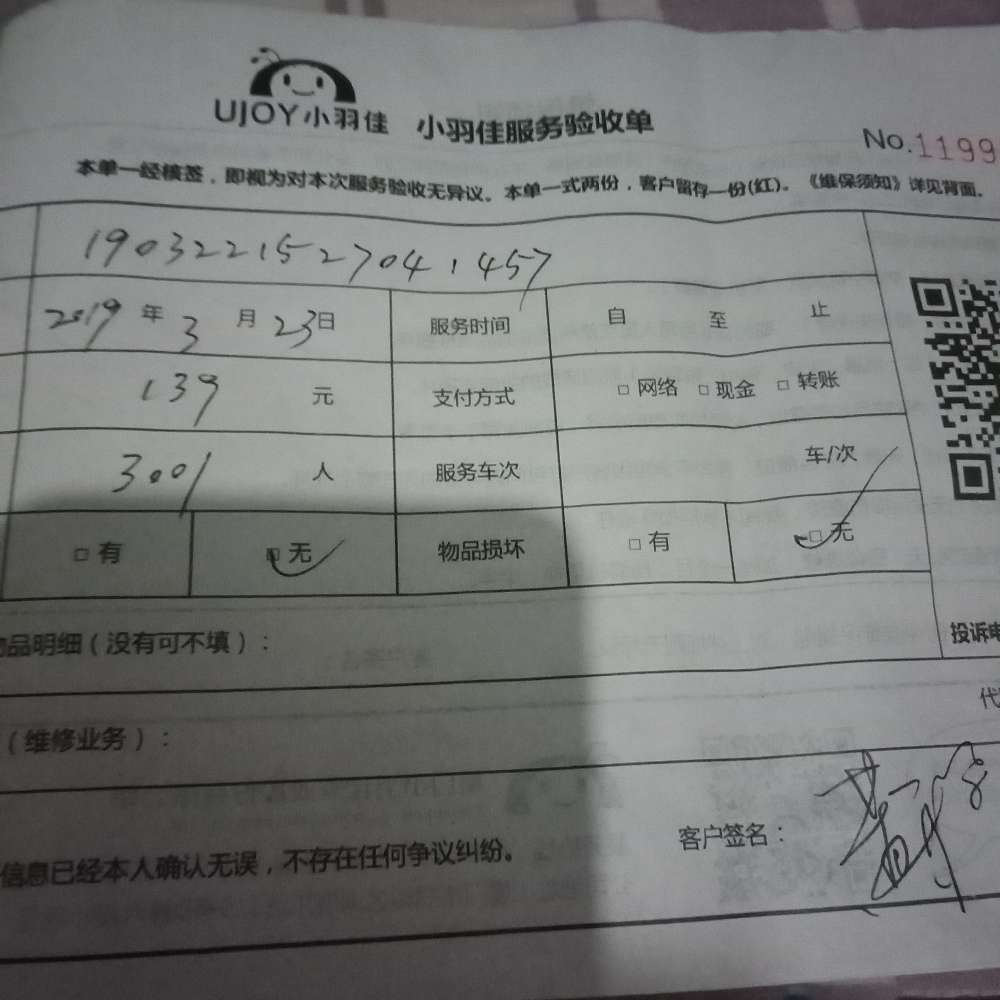 UJOY小羽佳 小羽佳服务验收单
No.1199
本单一经核签，即视为对本次服务验收无异议。本单一式两份，客户留存一份(红)。《维保须知》详见背面。
1903221527041457
2019年3月23日 服务时间 自 至 止
139 元 支付方式 □网络 □现金 □转账
3001 人 服务车次 车/次
□有 □无 物品损坏 □有 □无
品明细（没有可不填）：
投诉电
代
（维修业务）：
信息已经本人确认无误，不存在任何争议纠纷。 客户签名：